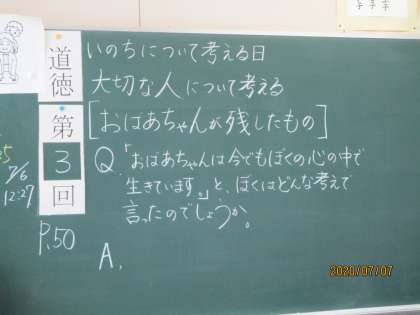 道徳
第
3
回
P.50
いのちについて考える日
大切な人について考える
[おばあちゃんが残したもの]
Q「おばあちゃんは今でもぼくの心の中で
生きています。」と、ぼくはどんな考えで
言ったのでしょうか。
A.
7/6
12:27
2020/07/07